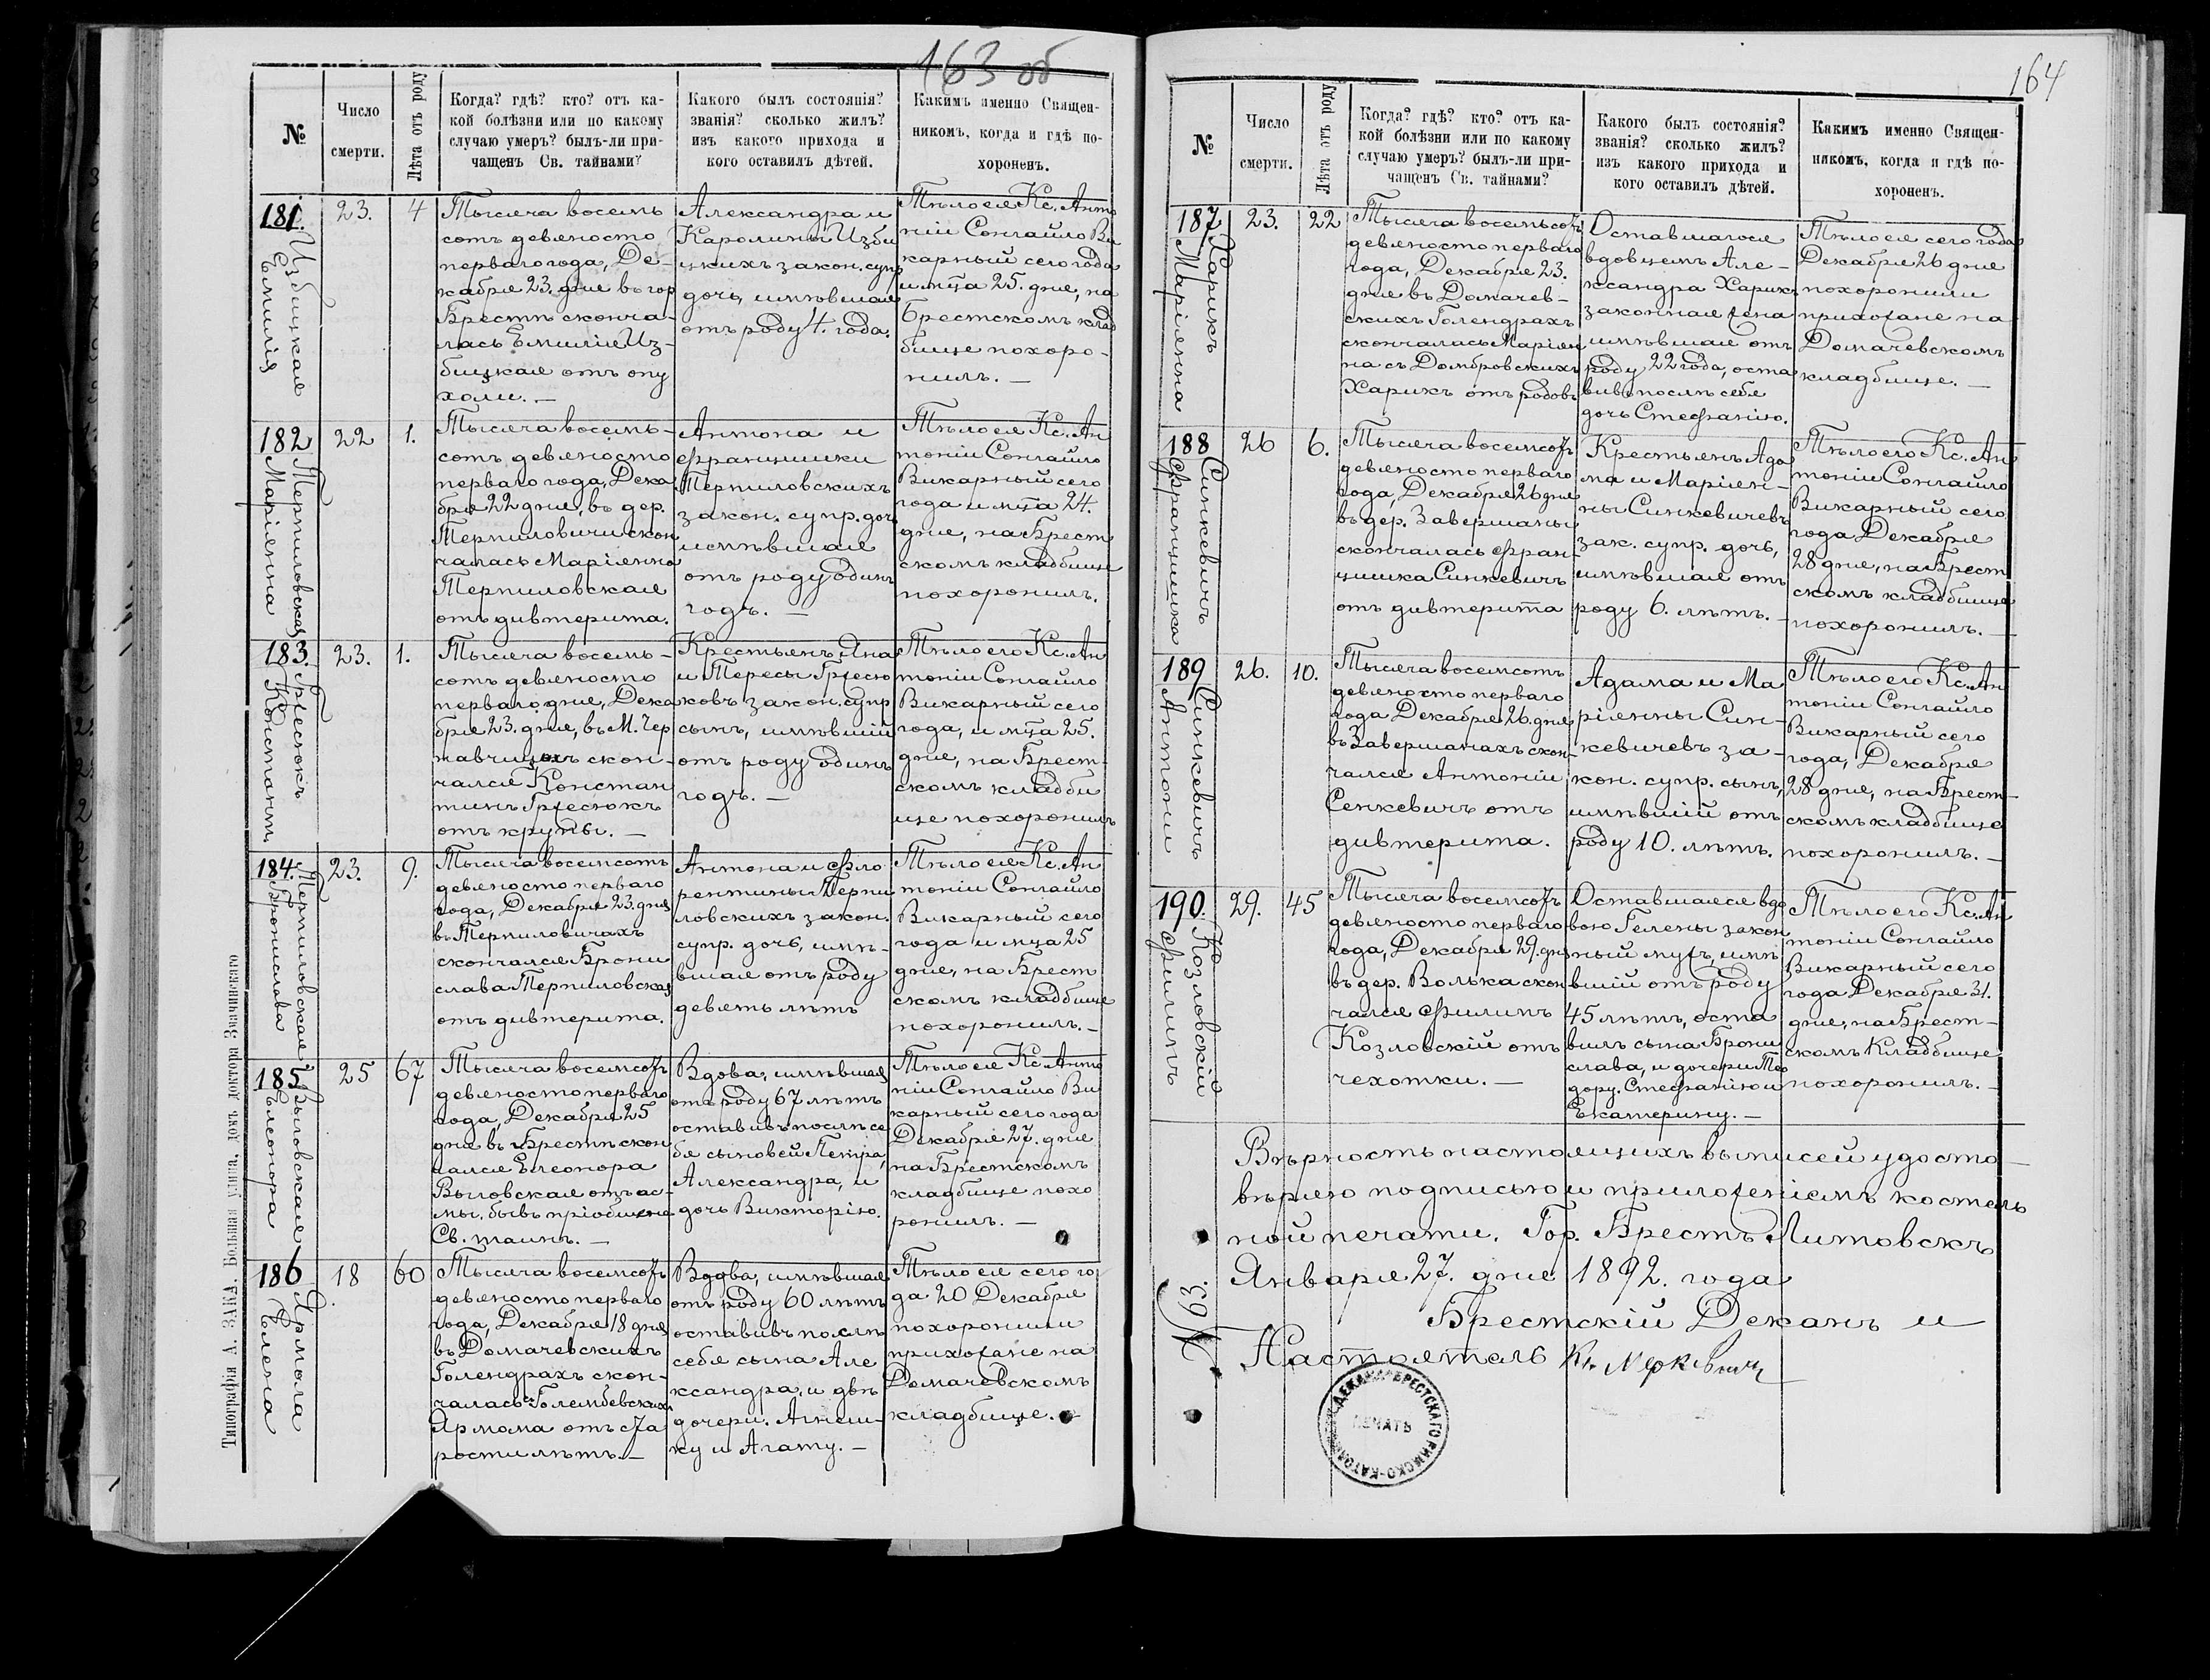 163 об
№
Число
смерти.
Лѣта отъ роду
Когда? гдѣ? кто? отъ ка-
кой болѣзни или по какому
случаю умеръ? былъ-ли при-
чащенъ Св. тайнами?
Какого былъ состоянія?
званія? сколько жилъ?
изъ какого прихода и
кого оставилъ дѣтей.
Какимъ именно Священ-
никомъ, когда и гдѣ по-
хороненъ.
181.
Избицкая
Емилія
23.
4
Тысяча восемь
сотъ девяносто
перваго года, Де-
кабря 23. дня въ гор
Брестѣ сконча-
лась Емилія Из-
бицкая отъ опу
холи. —
Александра и
Каролины Изби
цкихъ закон. супр
дочь, имѣвшая
отъ роду 4. года.
Тѣло ея Кс. Анто
ній Сонгайло Ви
карный сего года
и мца 25. дня, на
Брестскомъ клад
бище похоро-
нилъ. —
182
Терпиловская
Маріянна
22
1.
Тысяча восемь-
сотъ девяносто
перваго года, Дека
бря 22 дня, въ дер.
Терпиловичи скон
чалась Маріянна
Терпиловская
отъ дивтерита.
Антона и
Францишки
Терпиловскихъ
закон. супр. дочь
имѣвшая
отъ роду одинъ
годъ. —
Тѣло ея Кс. Ан
тоній Сонгайло
Викарный сего
года и мца 24.
дня, на Брест
скомъ кладбище
похоронилъ.
183.
Грзесюкъ
Константинъ
23.
1.
Тысяча восемь-
сотъ девяносто
перваго дня, Дека
бря 23. дня, въ М. Чер
навчицахъ скон-
чался Констан
тинъ Грзесюкъ
отъ крупы. —
Крестьянъ Яна
и Тересы Грзесю
ковъ закон. супр
сынъ, имѣвшій
отъ роду одинъ
годъ. —
Тѣло его Кс. Ан
тоній Сонгайло
Викарный сего
года, и мца 25.
дня, на Брест-
скомъ кладби
ще похоронилъ
184.
Терпиловская
Бронислава
23.
9.
Тысяча восемсотъ
девяносто перваго
года, Декабря 23. дня
въ Терпиловичахъ
скончалася Брони
слава Терпиловская
отъ дивтерита.
Антона и Фло
рентины Терпи
ловскихъ закон.
супр. дочь, имѣ-
вшая отъ роду
девять лѣтъ
Тѣло ея Кс. Ан
тоній Сонгайло
Викарный сего
года и мца 25
дня, на Брест
скомъ кладбище
похоронилъ. —
185
Выговская
Елеонора
25
67
Тысяча восемсотъ
девяносто перваго
года, Декабря 25
дня въ Брестѣ скон
чалася Елеонора
Выговская отъ ас-
мы, бывъ пріобщена
Св. таинъ. —
Вдова, имѣвшая
отъ роду 67 лѣтъ
оставивъ послѣ се
бя сыновей Петра,
Александра, и
дочь Викторію.
Тѣло ея Кс Анто
ній Сонгайло Ви
карный сего года
Декабря 27. дня
на Брестскомъ
кладбище похо
ронилъ. —
186
Ярмола
Елена
18
60
Тысяча восемсотъ
девяносто перваго
года, Декабря 18 дня
въ Домачевскихъ
Голендрахъ скон-
чалась съ Голембевскихъ
Ярмома отъ ста
рости лѣтъ. —
Вдова, имѣвшая
отъ роду 60 лѣтъ
оставивъ послѣ
себя сына Але
ксандра, и двѣ
дочери. Агнеш-
ку и Агату. —
Тѣло ея сего го
да 20 Декабря
похоронили
прихожане на
Домачевскомъ
кладбище. —
Типографія А. ЗАКА, Большая улица, домъ доктора Значинскаго
164
№
Число
смерти.
Лѣта отъ роду
Когда? гдѣ? кто? отъ ка-
кой болѣзни или по какому
случаю умеръ? былъ-ли при-
чащенъ Св. тайнами?
Какого былъ состоянія?
званія? сколько жилъ?
изъ какого прихода и
кого оставилъ дѣтей.
Какимъ именно Священ-
никомъ, когда и гдѣ по-
хороненъ.
187
Харикъ
Маріянна
23.
22
Тысяча восемьсотъ
девяносто перваго
года, Декабря 23.
дня въ Домачев-
скихъ Голендрахъ
скончалась Маріян
на съ Домбровскихъ
Харикъ отъ родовъ
Оставшагося
вдовцемъ Але-
ксандра Харикъ
законная жена
имѣвшая отъ
роду 22 года, оста
вивъ послѣ себя
дочь Стефанію.
Тѣло ея сего года
Декабря 26 дня
похоронили
прихожане на
Домачевскомъ
кладбище. —
188
Синкевичъ
Францишка
26
6.
Тысяча восемсотъ
девяносто перваго
года, Декабря 26 дня
въ дер. Завершаны
скончалась Фран-
цишка Синкевичъ
отъ дивтерита
Крестьянъ Ада
ма и Маріян-
ны Синкевичевъ
зак. супр. дочь,
имѣвшая отъ
роду 6. лѣтъ. —
Тѣло его Кс. Ан
тоній Сонгайло
Викарный сего
года Декабря
28 дня, на Брест
скомъ кладбище
похоронилъ. —
189
Синкевичъ
Антоній
26.
10.
Тысяча восемсотъ
девяносто перваго
года Декабря 26. дня
въ Завершанахъ скон-
чался Антоній
Сенкевичъ отъ
дивтерита.
Адама и Ма
ріянны Син-
кевичевъ за-
кон. супр. сынъ,
имѣвшій отъ
роду 10. лѣтъ.
Тѣло его Кс. Ан
тоній Сонгайло
Викарный сего
года, Декабря
28 дня, на Брест-
скомъ кладбище
похоронилъ. —
190.
Козловскій
Филипъ
29.
45
Тысяча восемсотъ
девяносто перваго
года, Декабря 29. дня
въ дер. Волька скон
чался Филипъ
Козловскій отъ
чехотки. —
Оставшаяся вдо
вою Гелены закон
ный мужъ, имѣ
вшій отъ роду
45 лѣтъ, оста
вилъ сына Брони
слава, и дочери Тео
дору, Стефанію и
Екатерину. —
Тѣло его Кс. Ан
тоній Сонгайло
Викарный сего
года Декабря 31.
дня, на Брест-
скомъ Кладбище
похоронилъ. —
Вѣрность настоящихъ выписей удосто-
вѣряю подписью и приложеніемъ костель
ной печати. Гор. Брестъ Литовскъ
Января 27. дня 1892. года
Брестскій Деканъ и
Настоятель Кс.
№ 63.
ПЕЧАТЬ